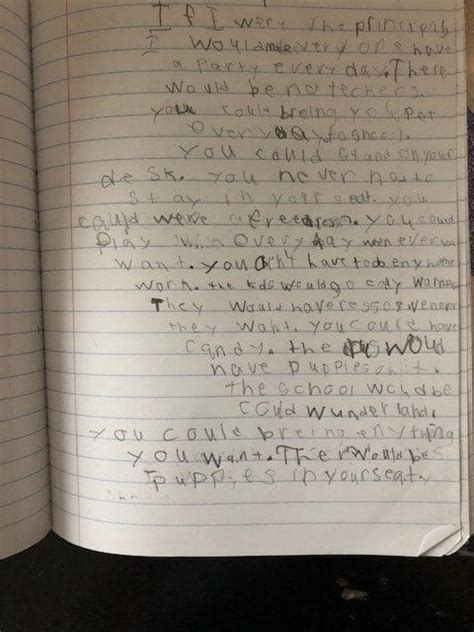 If I were the principal
I would make every one have
a Party every day. There
would be no techers.
you could breing your Pet
every day to shcool.
You could stand on your
desk. you never have to
stay in your seat. you
could were a free dress. you could
Play when ever you
want. you don't have to do eny home
work. the kids would go
They would have resses wenever
they want. you could have
candy. the would
have puppies on it.
the school would be
could wunderland.
you could breing enything
you want. Ther would be
puppies in your seat.